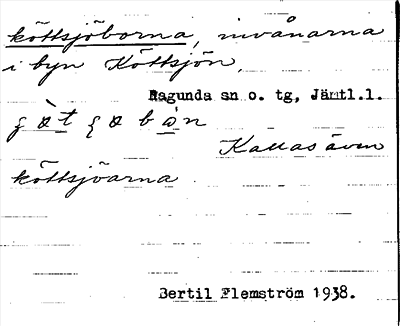 köttsjöborna, invånarna
i byn Köttsjön,
Ragunda sn o. tg, Jämtl.l.
Kallas även
köttsjöarna
Bertil Flemström 1938.